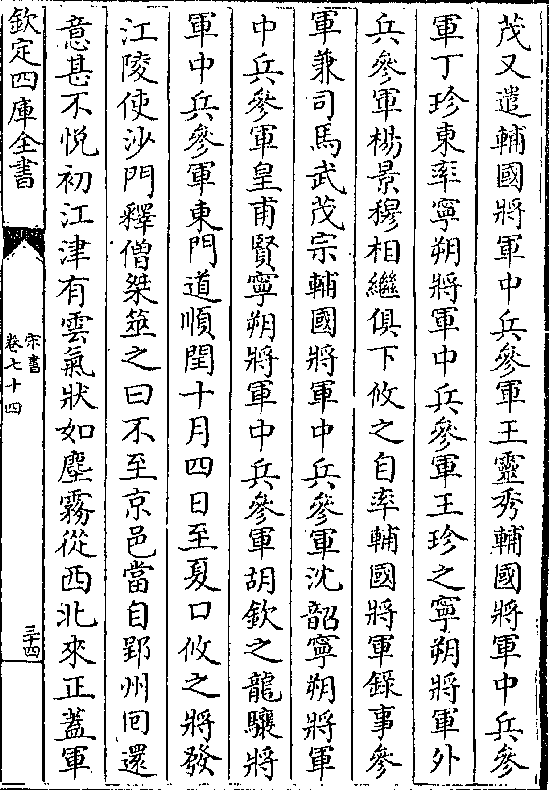 茂又遣輔國將軍中兵參軍王靈秀輔國將軍中兵參
軍丁珍東率寧朔將軍中兵參軍王珍之寧朔將軍外
兵參軍楊景穆相繼俱下攸之自率輔國將軍錄事參
軍兼司馬武茂宗輔國將軍中兵參軍沈韶寧朔將軍
中兵參軍皇甫賢寧朔將軍中兵參軍胡欽之龍驤將
軍中兵參軍東門道順閏十月四日至夏口攸之將發
江陵使沙門釋僧桀筮之曰不至京邑當自郢州回還
意甚不悅初江津有雲氣狀如塵霧從西北來正蓋軍
欽定四庫全書
宋書
卷七十四
三十四